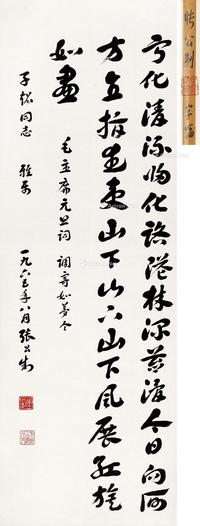 宁化清流归化路隘林深苔滑今日向何
方直指武夷山下山下山下风展红旗
如画
毛主席元旦词 调寄如梦令
子铭同志 雅参
一九六五年八月张公制
张公制